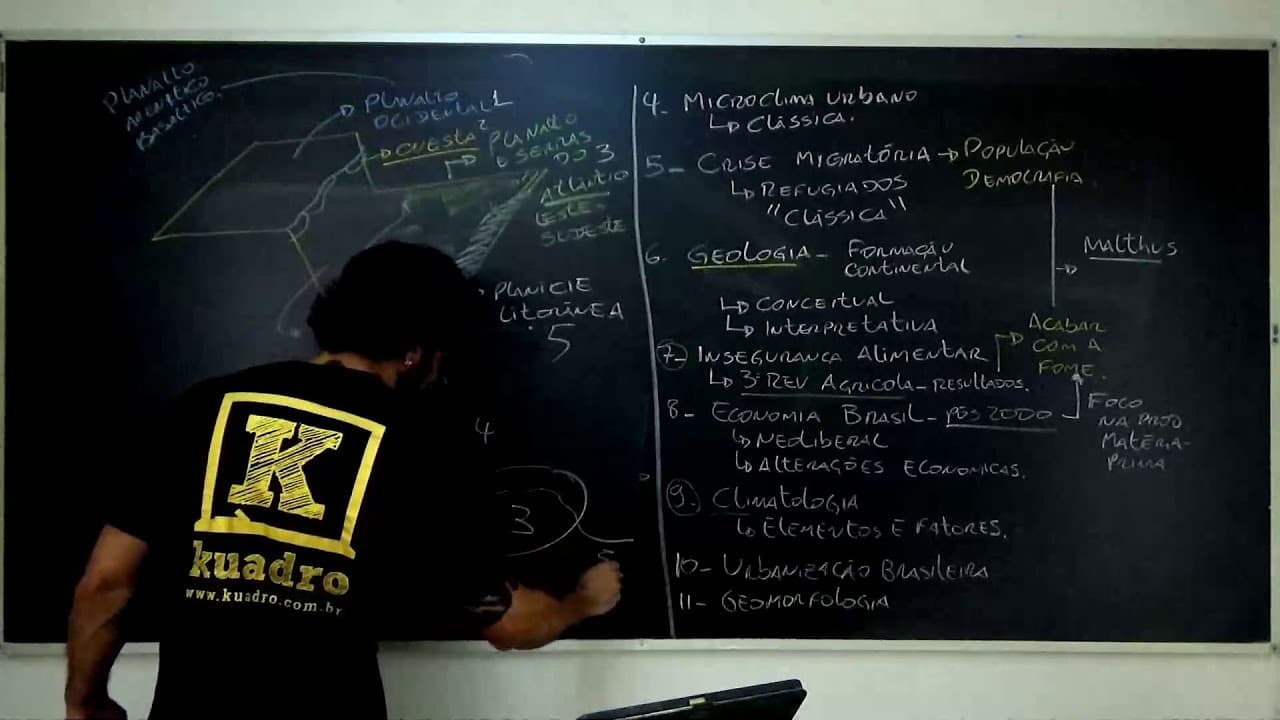 PLANALTO
ARENÍTICO
BASÁLTICO.
PLANALTO
OCIDENTAL 1
CUESTA 2
PLANALTO
E SERRAS
DO 3
ATLÂNTICO
LESTE
SUDESTE
PLANÍCIE
LITORÂNEA
5
4
3
5
K
kuadro
www.kuadro.com.br
4- MICROCLIMA URBANO
↳ CLÁSSICA.
5- CRISE MIGRATÓRIA → POPULAÇÃO
DEMOGRAFIA
↳ REFUGIADOS
"CLÁSSICA"
6. GEOLOGIA - FORMAÇÃO
CONTINENTAL
↳ CONCEITUAL
↳ INTERPRETATIVA
MALTHUS
7- INSEGURANÇA ALIMENTAR
↳ 3ª REV AGRÍCOLA - RESULTADOS.
ACABAR
COM A
FOME.
8- ECONOMIA BRASIL - PÓS 2000
↳ NEOLIBERAL
↳ ALTERAÇÕES ECONOMICAS.
FOCO
NA PROD
MATÉRIA-
PRIMA
9. CLIMATOLOGIA
↳ ELEMENTOS E FATORES.
10- URBANIZAÇÃO BRASILEIRA
11- GEOMORFOLOGIA